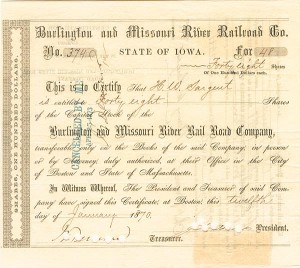 Burlington and Missouri River Railroad Co.
No. 3740 STATE OF IOWA. For 48
Forty eight Shares
Of One Hundred Dollars each.
This is to Certify That H. W. Sargent
is entitled to Forty eight Shares
of the Capital Stock of the
Burlington and Missouri River Rail Road Company,
transferable on the Books of the said Company, in person
or by Attorney, duly authorized, at their Office in the City
of Boston and State of Massachusetts.
In Witness Whereof, The President and Treasurer of said Com-
pany have signed this Certificate at Boston this twelfth
day of January 1870.
President.
Treasurer.
SHARES, ONE HUNDRED DOLLARS.
CANCELLED